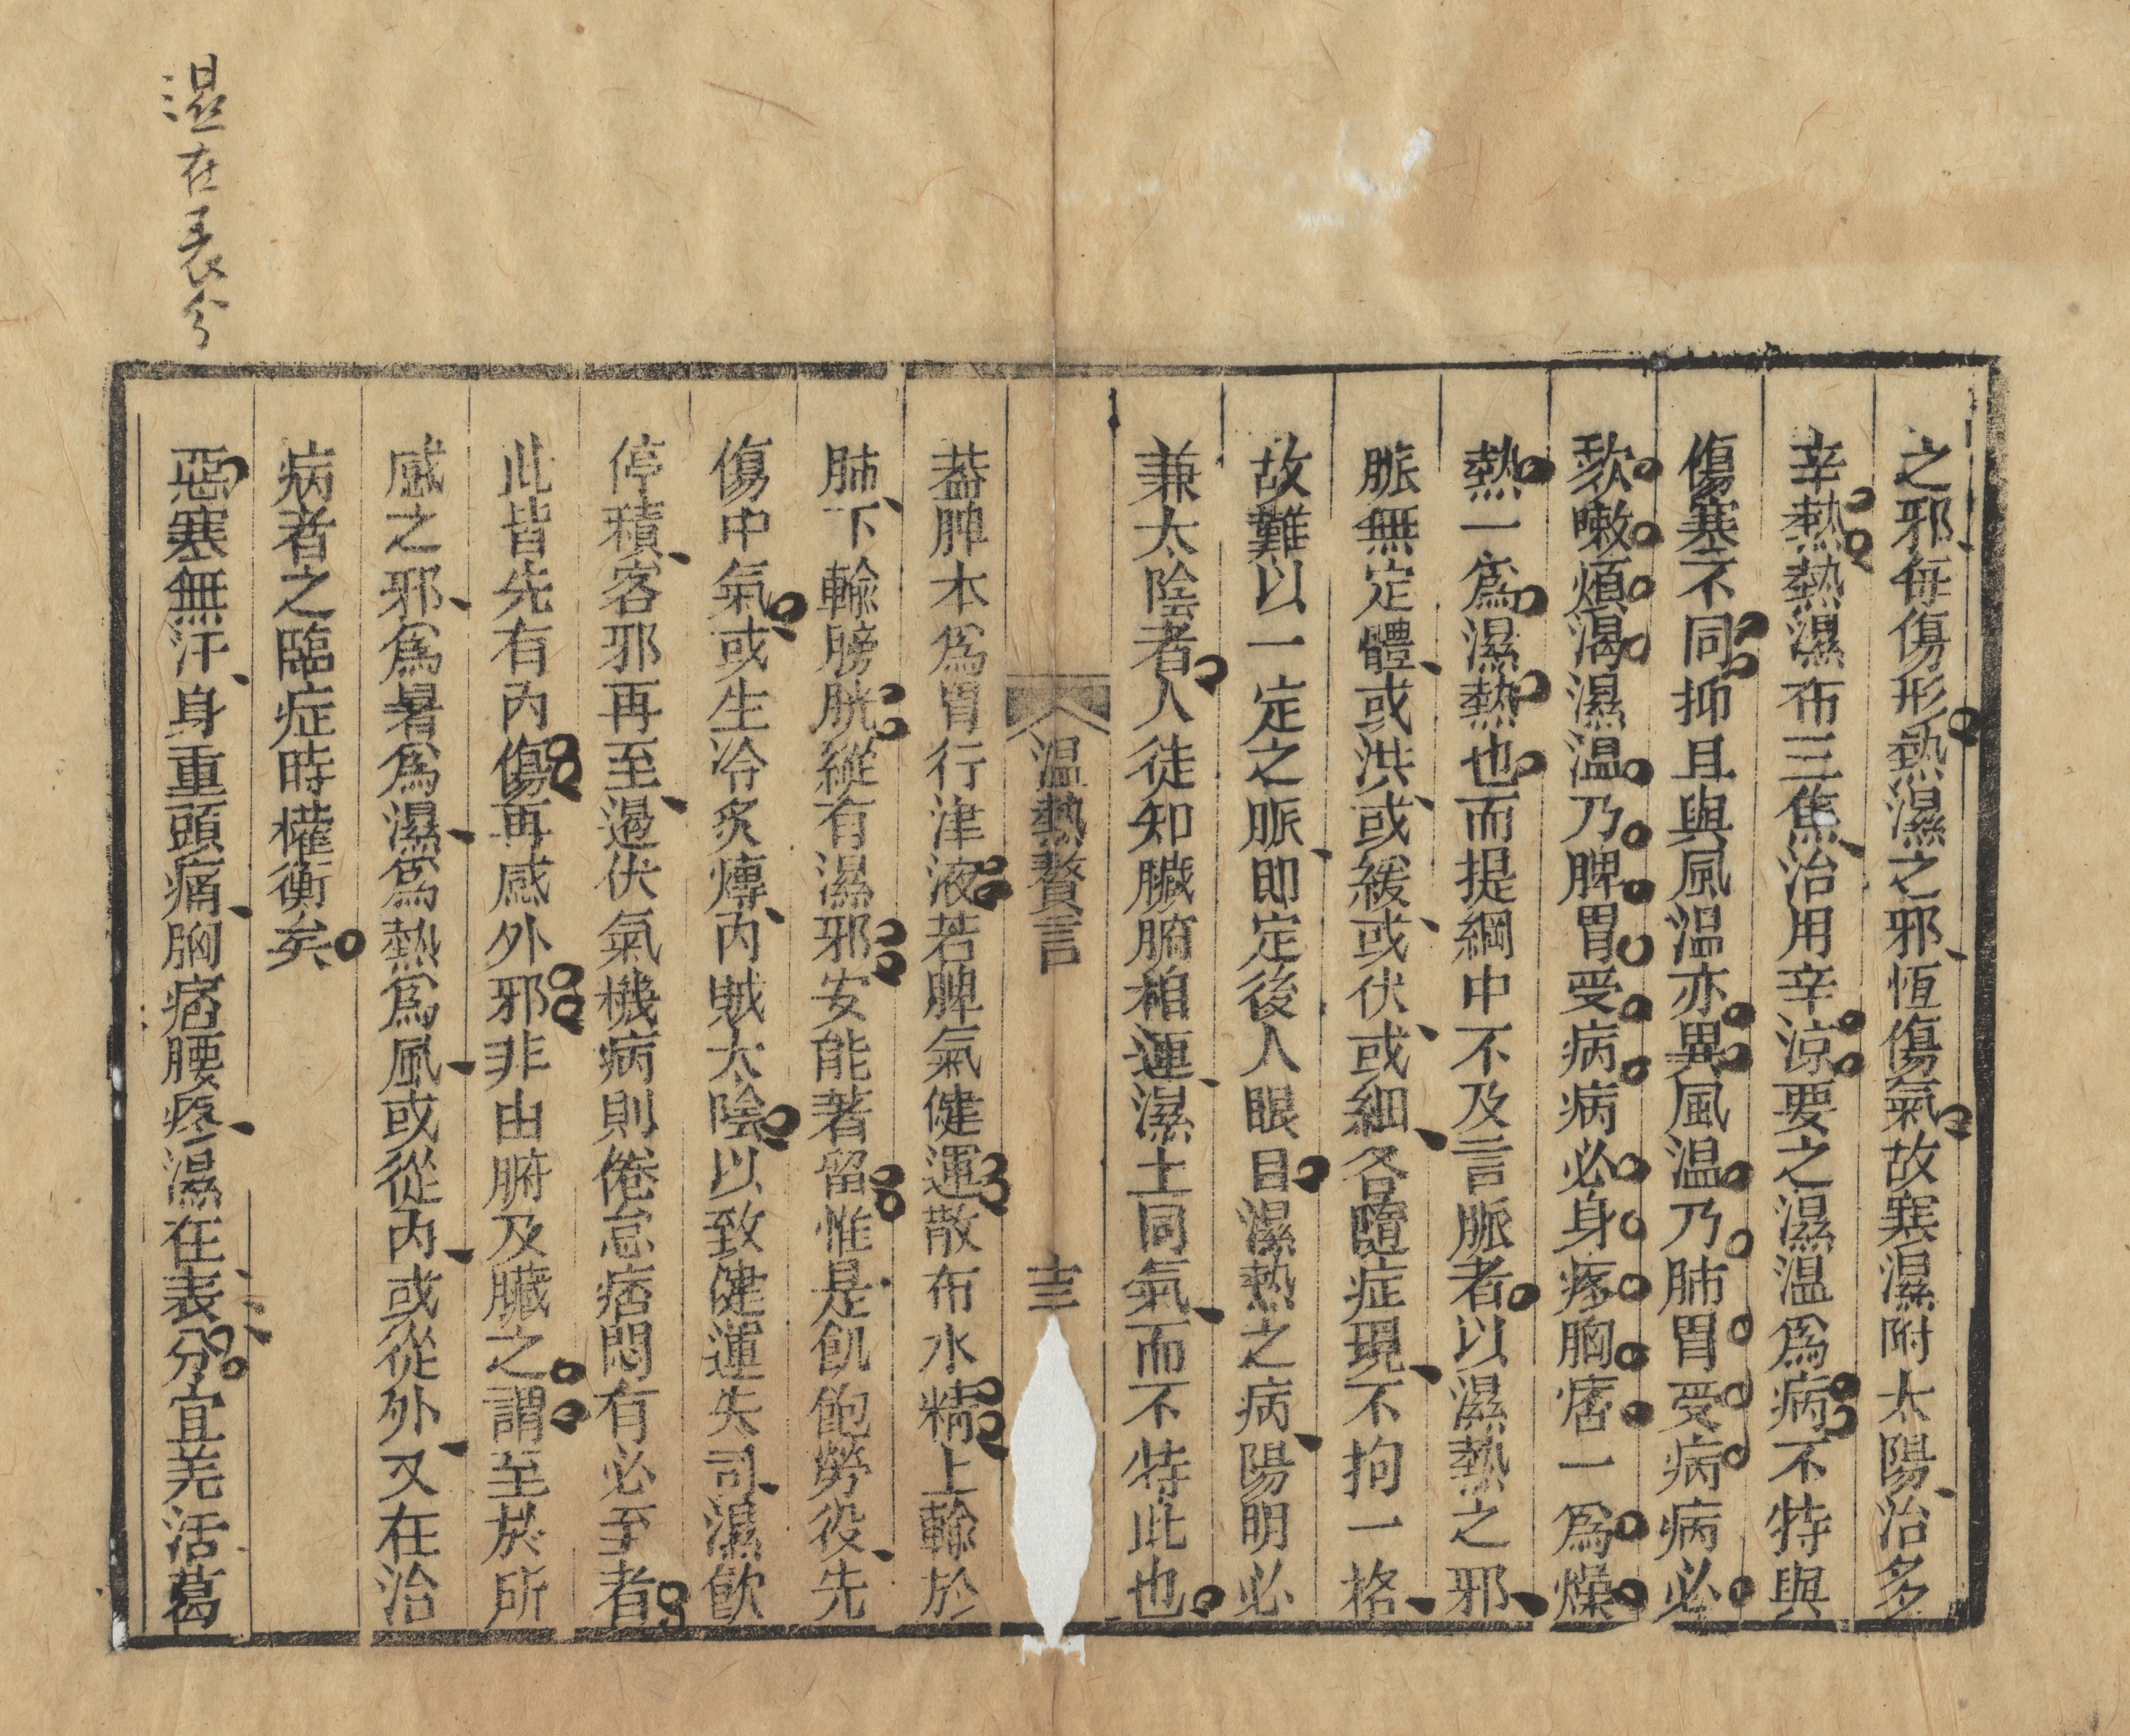 之邪每傷形熱濕之邪恆傷氣故寒濕附太陽治多
辛熱熱濕布三焦治用辛涼要之濕溫爲病不特與
傷寒不同抑且與風溫亦異風溫乃肺胃受病病必
欬嗽煩渴濕溫乃脾胃受病病必身疼胸痞一爲燥
熱一爲濕熱也而提綱中不及言脈者以濕熱之邪
脈無定體或洪或緩或伏或細各隨症現不拘一格
故難以一定之脈卽定後人眼目濕熱之病陽明必
兼太陰者人徒知臟腑相連濕土同氣而不特此也
温熱贅言
主
葢脾本爲胃行津液若脾氣健運散布水精上輸於
肺下輸膀胱縱有濕邪安能著留惟是飢飽勞役先
傷中氣或生冷炙煿內賊太陰以致健運失司濕飲
停積客邪再至遏伏氣機病則倦怠痞悶有必至者
此皆先有內傷再感外邪非由腑及臟之謂至於所
感之邪爲暑爲濕爲熱爲風或從內或從外又在治
病者之臨症時權衡矣
惡寒無汗身重頭痛胸痞腰疼濕在表分宜羌活葛
濕在表分